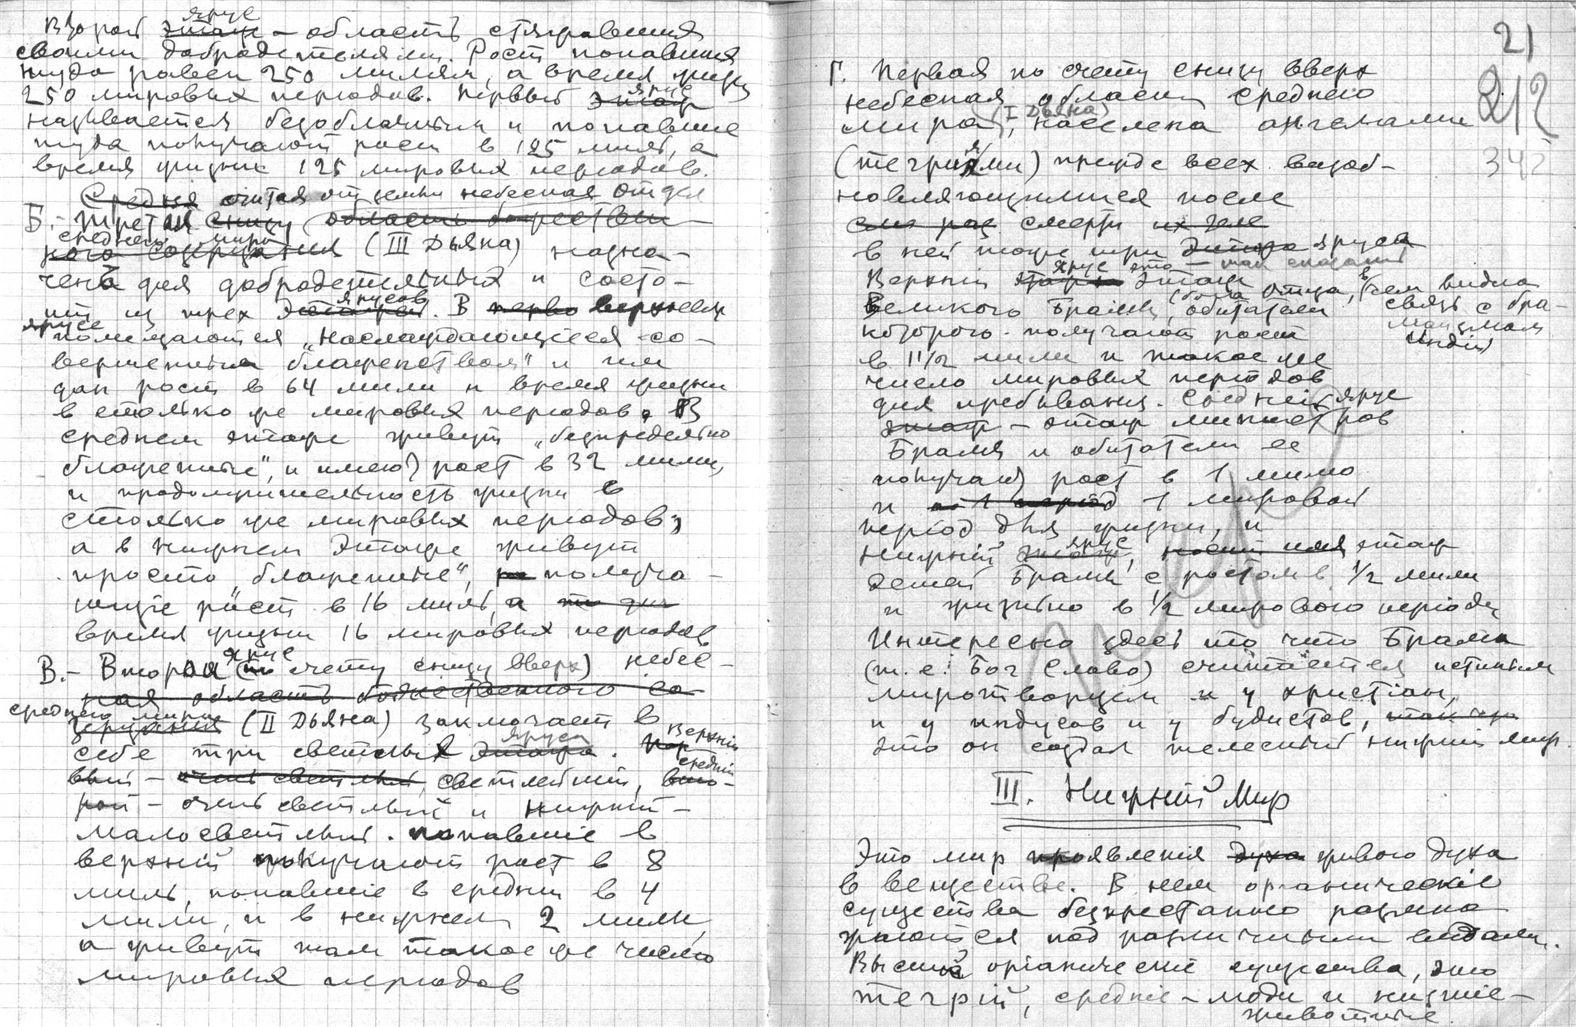 ярус
Второй этаж – область стяжавших
своими добродетелями. Рост попавших
туда равен 250 милям, а время жизни
250 мировых периодов. Первый этаж
ярус
называется безоблачным и попавшие
туда получают рост в 125 миль, а
время жизни 125 мировых периодов.
Средняя считая от земли небесная отдел
Б.- Третья снизу (область божествен-
среднего мира
кого созерцания (III Дьяна) назна-
чена для добродетельных и состо-
ит из трех этажей. В перво верхнем
ярусов
ярусе
помещаются „наслаждающиеся со-
вершенным блаженством" и им
дан рост в 64 мили и время жизни
в столько же мировых периодов. В
среднем этаже живут „безпредельно
блаженные", и имеют рост в 32 мили,
и продолжительность жизни в
столько же мировых периодов,
а в нижнем этаже живут
просто „блаженные", получа-
ющие рост в 16 миль, и
время жизни 16 мировых периодов
ярус
В.- Вторая (по счету снизу вверх) небес-
ная область божественного со-
среднего мира
зерцания (II Дьяна) заключает в
себе три светлых этажа. Пер
яруса
Верхний
вый – очень светлый, светлейший, вто-
средний
рой – очень светлый и нижний –
малосветлый. Попавшие в
верхний получают рост в 8
миль, попавшіе в средний в 4
мили, и в нижнем 2 мили,
а живут там такое же число
мировых периодов
21
212
342
Г. Первая по счету снизу вверх
небесная область среднего
(I Дьяна)
мира, населена ангелами
(тегриями) прежде всех возоб-
новляющимися после
смерти их
в ней тоже три этажа яруса
Верхній этаж ярус это – этаж
Великого Брамы, (бога отца, в чем видна
связь с бра-
манизмом
Индіи)
обитатели
которого получают рост
в 1 1/2 мили и такое же
число мировых периодов
для пребывания. Средній ярус
этаж – этаж министров
Брамы и обитатели ее
получают рост в 1 милю
и 1 период 1 мировой
период для жизни, и
нижній этаж ярус, носит имя этаж
детей Брамы с ростом в 1/2 мили
и жизнью в 1/2 мирового періода
Интересно здесь то что Брама
(т.е. Бог Слово) считается истинным
миротворцем и у христіан,
и у индусов и у будистов,
это он создал телесный нижній мир.
III. Нижній Мир
Это мир проявленія духа живого духа
в веществе. В нем органическіе
существа безпрестанно размно
жаются под различными видами.
Высшіе органическіе существа, это
тегрій, средніе – люди и низшіе –
животные.